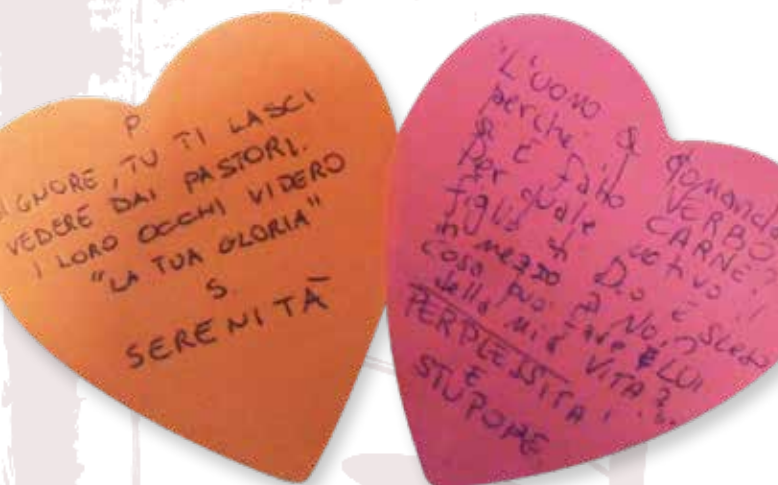 P
SIGNORE, TU TI LASCI
VEDERE DAI PASTORI.
I LORO OCCHI VIDERO
"LA TUA GLORIA"
S.
SERENITÀ
L'UOMO si domanda
perché il VERBO
si è fatto CARNE?
Per quale motivo il
figlio di Dio è sceso
in mezzo a Noi,
cosa può fare LUI
della mia VITA?
PERPLESSITÀ
E
STUPORE